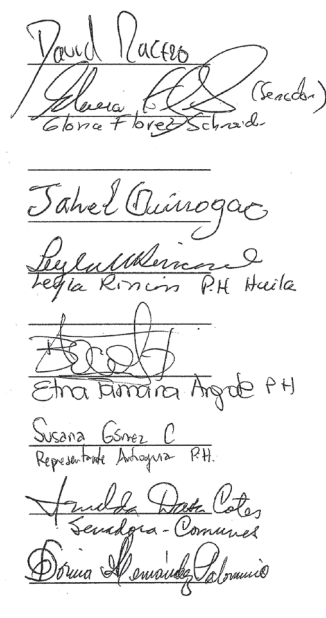 David Racero
(Senador)
Gloria Florez Schneider
Jahel Quiroga
Leyla Rincón P.H Huila
Etna Tamara Argote P H
Susana Gómez C
Representante Antioquia P.H.
Imelda Daza Cotes
Senadora - Comunes
Dorina Hernández Palomino